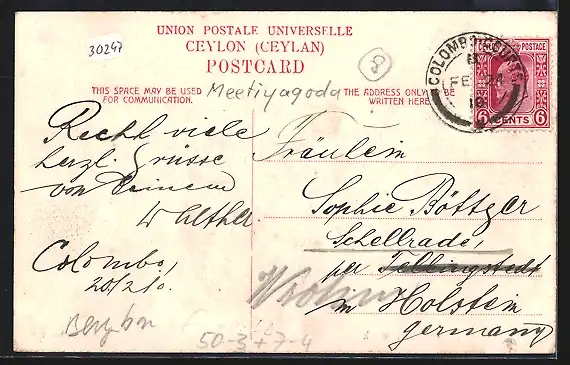 UNION POSTALE UNIVERSELLE
CEYLON (CEYLAN)
POSTCARD
30247
8
THIS SPACE MAY BE USED
FOR COMMUNICATION.
Meetiyagoda
THE ADDRESS ONLY BE
WRITTEN HERE.
COLOMBO
FE 24
10
POSTAGE
6 CENTS 6
Recht viele
herzl. Grüsse
von Deinem
Walther
Colombo,
20/2 10.
Fräulein
Sophie Böttger
Schellrade,
per Tellingstedt
in Holstein
Germany
50-3+7-4